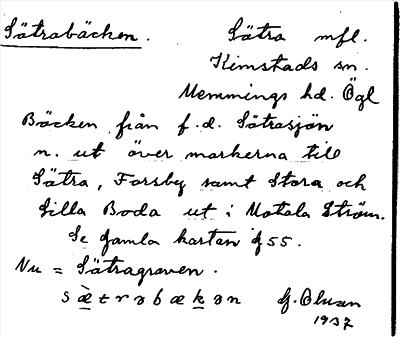 Sätrabäcken. Sätra mfl.
Kimstads sn.
Memmings hd. Ögl
Bäcken från f.d. Sätrasjön
n. ut över markerna till
Sätra, Forsby samt Stora och
Lilla Boda ut i Motala Ström.
Se Gamla kartan § 55.
Nu = Sätragraven.
s æ̀ t r ə b æ k ə n G. Olsson
1937